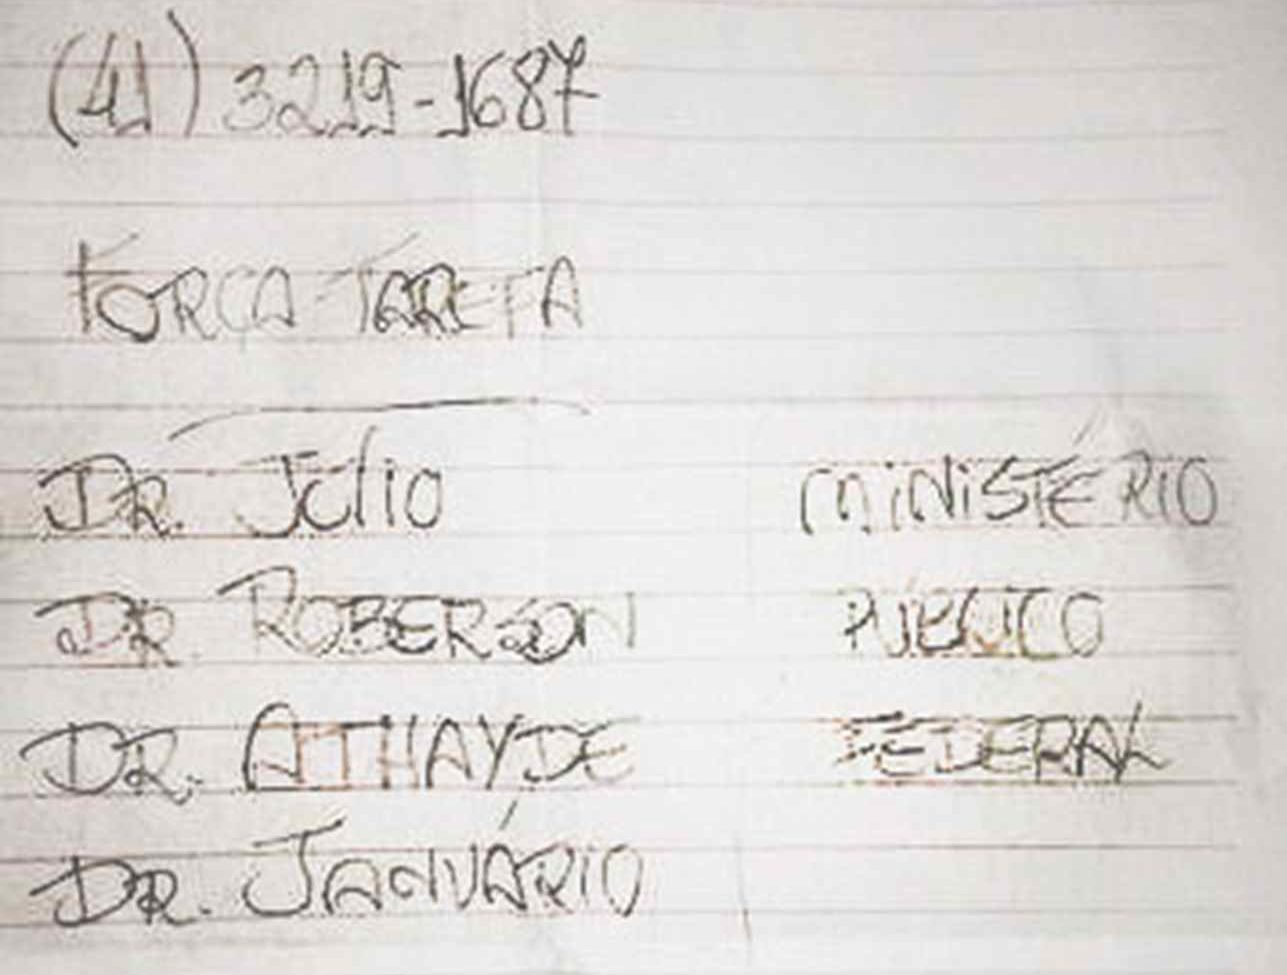 (41) 3219-1687
FORÇA-TAREFA
DR. Júlio MiNiSTÉRIO
DR. ROBERSON PÚBLICO
DR. ATHAYDE FEDERAL
DR. JANUÁRIO